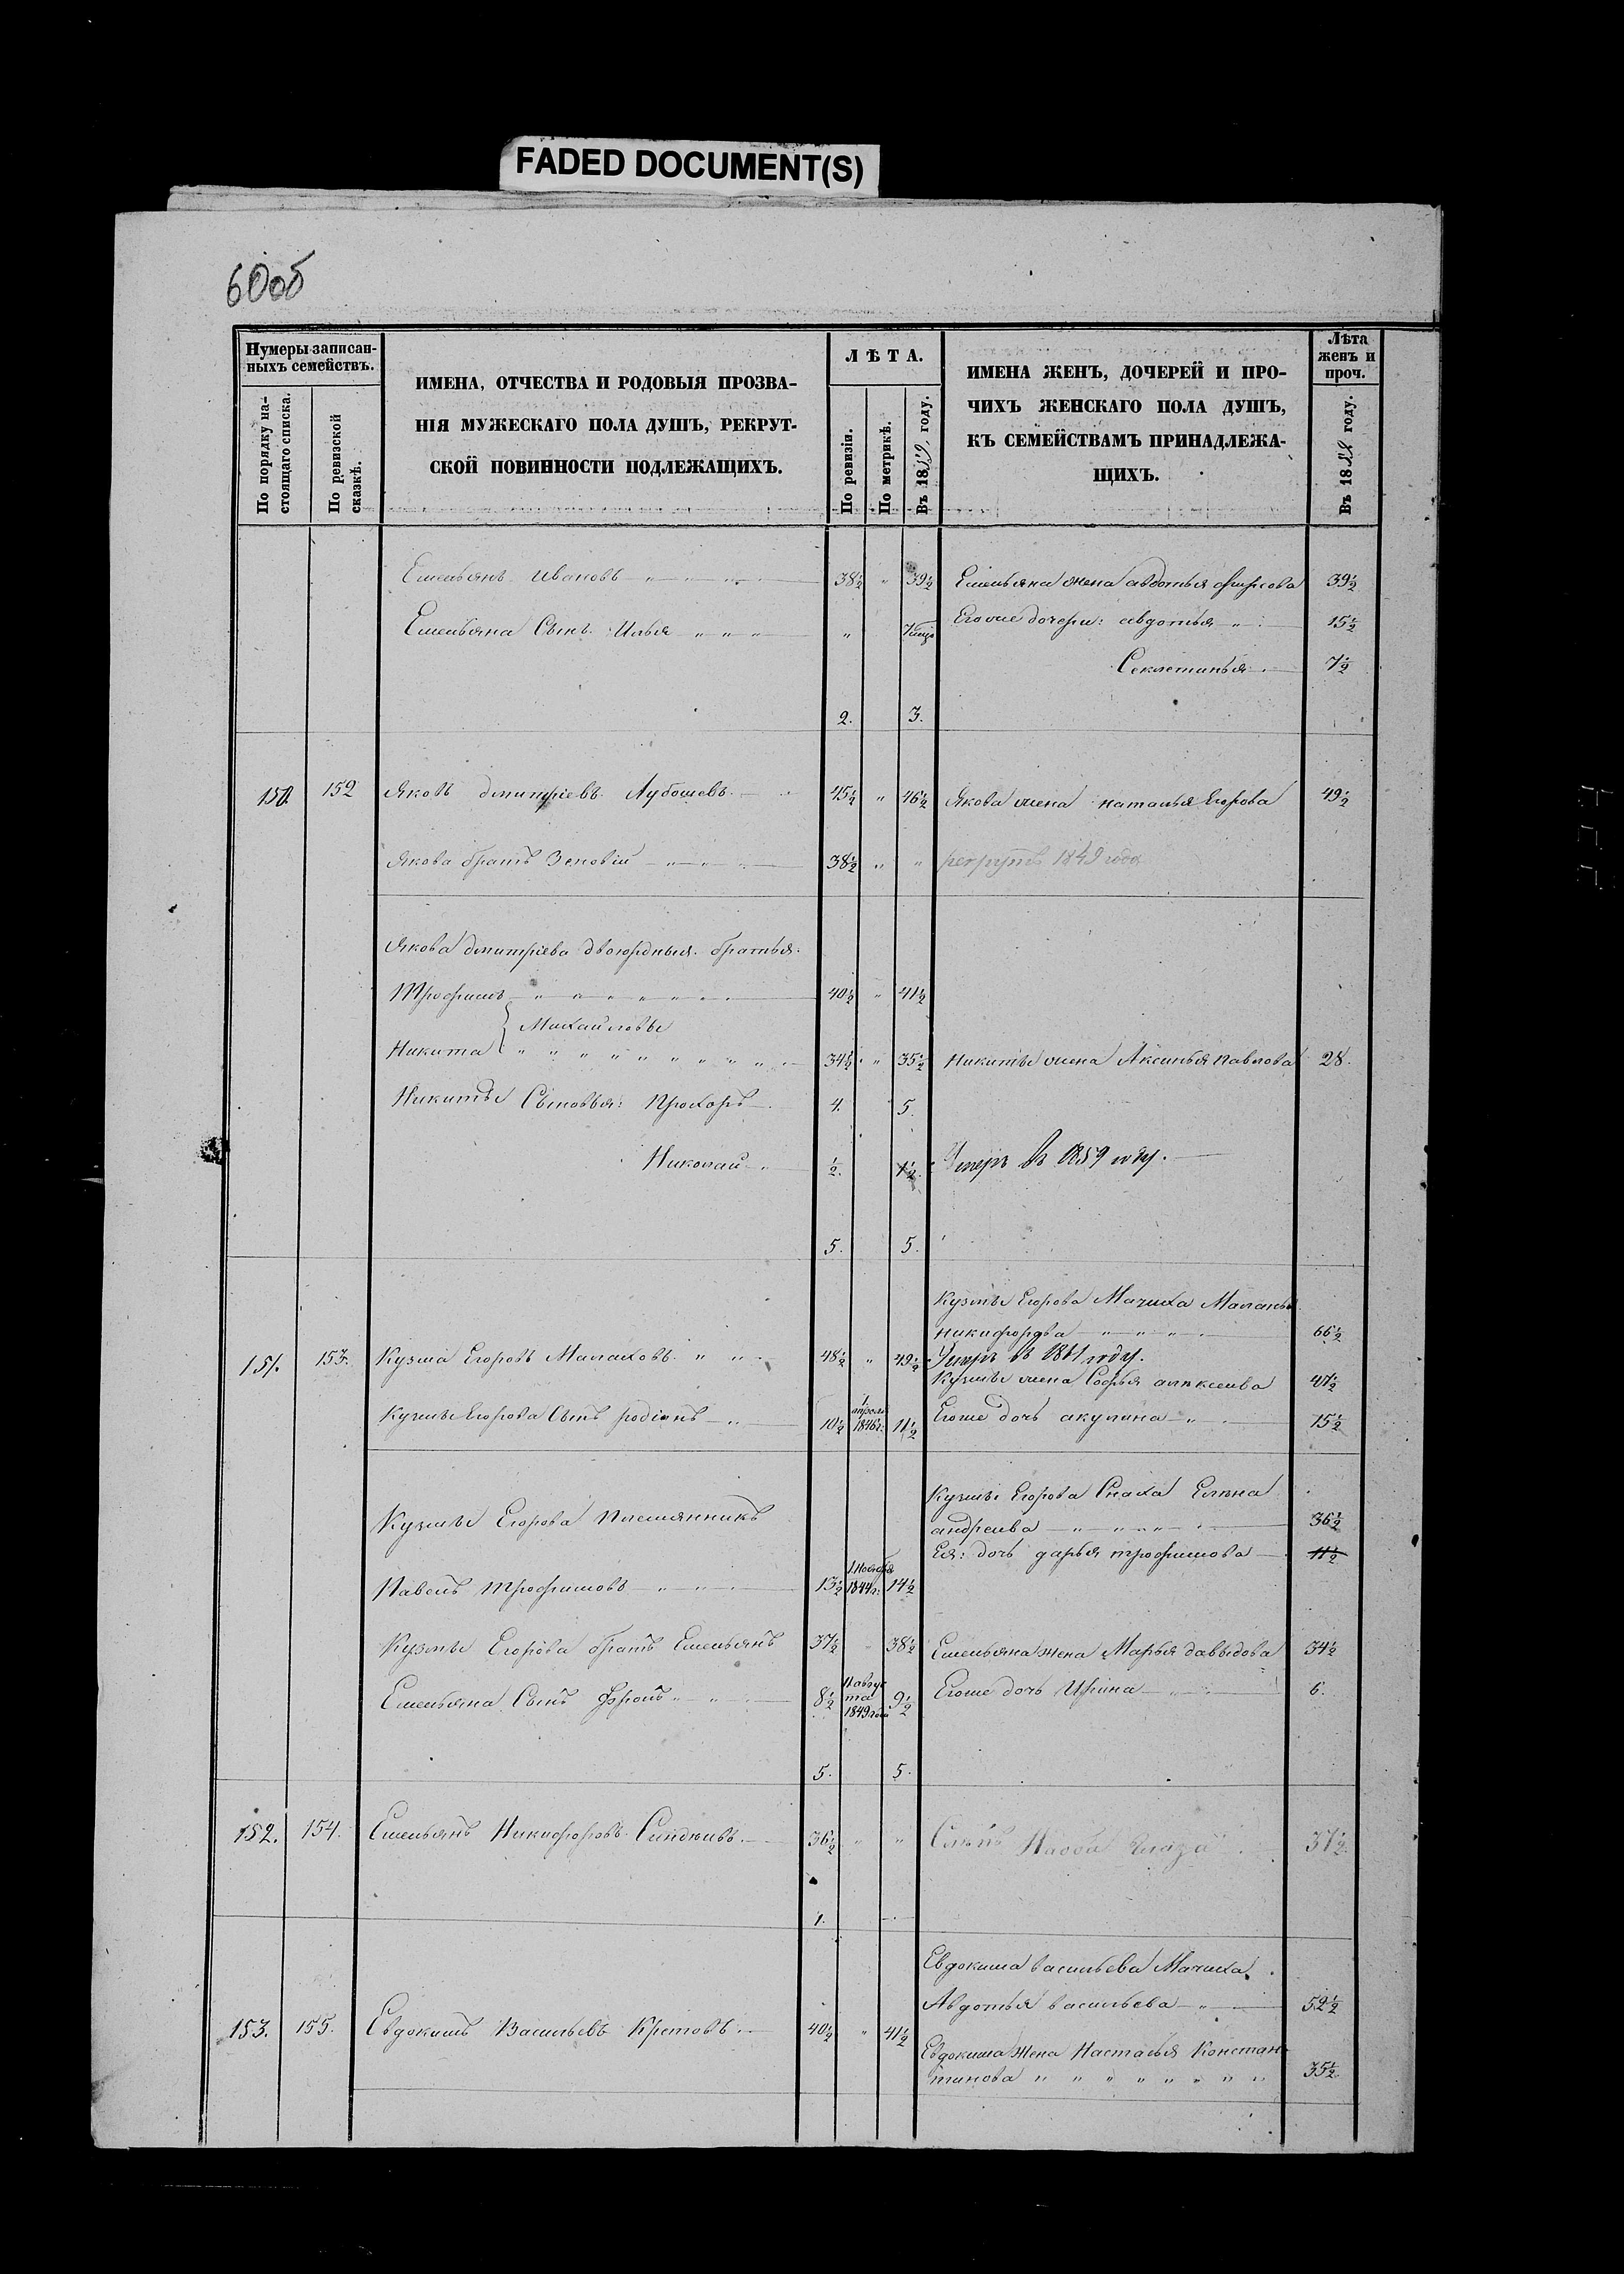 FADED DOCUMENT(S)
60об
Нумеры записан-
ныхъ семействъ.
По порядку на-
стоящаго списка.
По ревизской
сказкѣ.
ИМЕНА, ОТЧЕСТВА И РОДОВЫЯ ПРОЗВА-
НІЯ МУЖЕСКАГО ПОЛА ДУШЪ, РЕКРУТ-
СКОЙ ПОВИННОСТИ ПОДЛЕЖАЩИХЪ.
ЛѢТА.
По ревизіи.
По метрикѣ.
Въ 1859 году.
ИМЕНА ЖЕНЪ, ДОЧЕРЕЙ И ПРО-
ЧИХЪ ЖЕНСКАГО ПОЛА ДУШЪ,
КЪ СЕМЕЙСТВАМЪ ПРИНАДЛЕЖА-
ЩИХЪ.
Лѣта
женъ и
проч.
Въ 18 году.
Емельянъ Ивановъ 38½ " 39½ Емельяна жена авдотья 39½
Емельяна Сынъ Илья " " " " Его же дочери: авдотья " 15½
Секлетинья 7½
2. 3.
150. 152 Яковъ дмитріевъ Лубошевъ 45½ " 46½ Якова жена наталья Егорова 49½
Якова братъ Зеновій 38½ " " рекрутъ 1849 года
Якова дмитріева двоюрдныя братья
Трофимъ 40½ " 41½
Михайловы
Никита 34½ " 35½ Никиты жена Аксинья павлова 28.
Никиты Сыновья: Прохоръ 4. 5.
Николай ½. 1½ Умеръ въ 1859 году.
5. 5.
Кузмы Егорова Мачиха Маланья
никифорова 66½
151. 153. Кузма Егоровъ Малаховъ 48½ " 49½ Умерла въ 1861 году.
Кузмы жена Софья алексеива 47½
Кузмы Егорова Сынъ родіонъ 10½ 1 апреля 1846г. 11½ Егоже дочь акулина 15½
Кузмы Егорова Сноха Елена
Кузмы Егорова племянникъ
андреива 36½
Ея: дочь дарья трофимова 11½
Павелъ трофимовъ 13½ 1 Ноября 1844г. 14½
Кузмы Егорова братъ Емельянъ 37½ 38½ Емельяна жена Марья давыдова 34½
Емельяна Сынъ Фролъ 8½ августа 1849 года 9½ Егоже дочь Ирина 6.
5. 5.
152. 154. Емельянъ Никифоровъ 36½ " " Слѣпъ глаза 37½
1.
Евдокима васильева Мачиха.
Авдотья васильева 52½
153. 155. Евдокимъ Васильевъ Кретовъ 40½ " 41½
Евдокима жена Настасья Констан-
тинова 35½